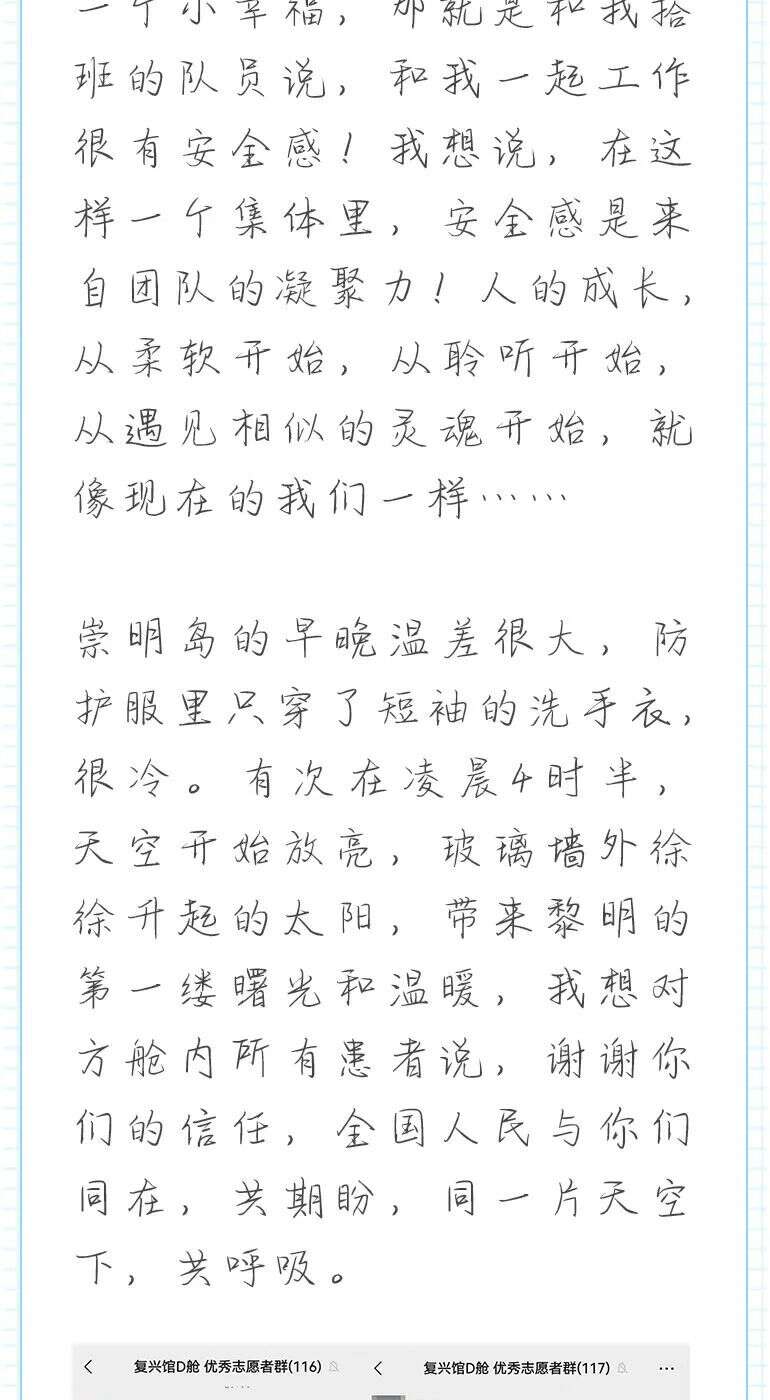 一个小幸福，那就是和我搭
班的队员说，和我一起工作
很有安全感！我想说，在这
样一个集体里，安全感是来
自团队的凝聚力！人的成长，
从柔软开始，从聆听开始，
从遇见相似的灵魂开始，就
像现在的我们一样……
崇明岛的早晚温差很大，防
护服里只穿了短袖的洗手衣，
很冷。有次在凌晨4时半，
天空开始放亮，玻璃墙外徐
徐升起的太阳，带来黎明的
第一缕曙光和温暖，我想对
方舱内所有患者说，谢谢你
们的信任，全国人民与你们
同在，共期盼，同一片天空
下，共呼吸。
复兴馆D舱 优秀志愿者群(116)
复兴馆D舱 优秀志愿者群(117)